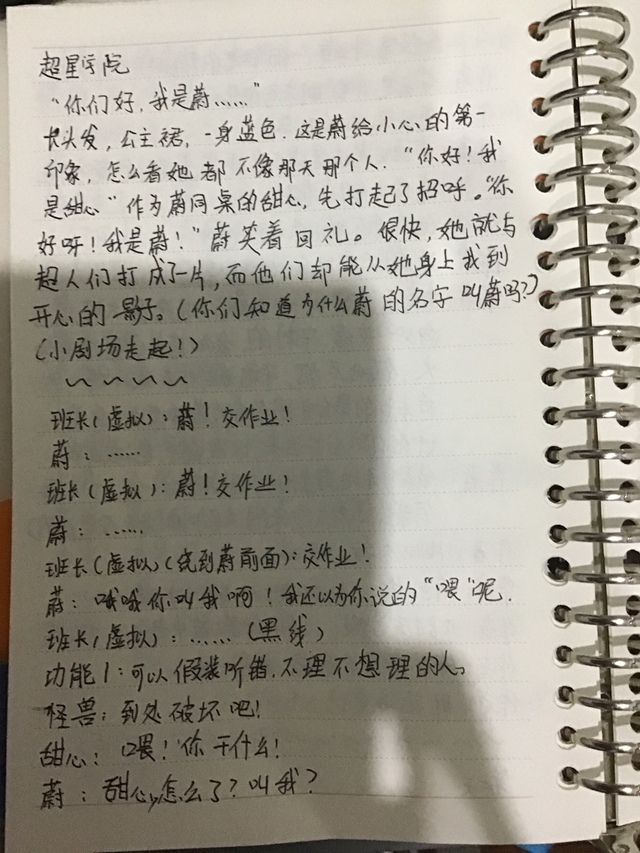 超星学院
“你们好，我是蔚……”
长头发，公主裙，一身蓝色．这是蔚给小心的第一
印象，怎么看她都不像那天那个人．“你好！我
是甜心”作为蔚同桌的甜心，先打起了招呼。“你
好呀！我是蔚！”蔚笑着回礼。很快，她就与
超人们打成了一片，而他们却能从她身上找到
开心的影子。（你们知道为什么蔚的名字叫蔚吗？）
（小剧场走起！）
～～～～
班长（虚拟）：蔚！交作业！
蔚：……
班长（虚拟）：蔚！交作业！
蔚：……
班长（虚拟）（绕到蔚前面）：交作业！
蔚：哦哦你叫我啊！我还以为你说的“喂”呢．
班长（虚拟）：……（黑线）
功能1：可以假装听错，不理不想理的人。
怪兽：到处破坏吧！
甜心：喂！你干什么！
蔚：甜心，怎么了？叫我？